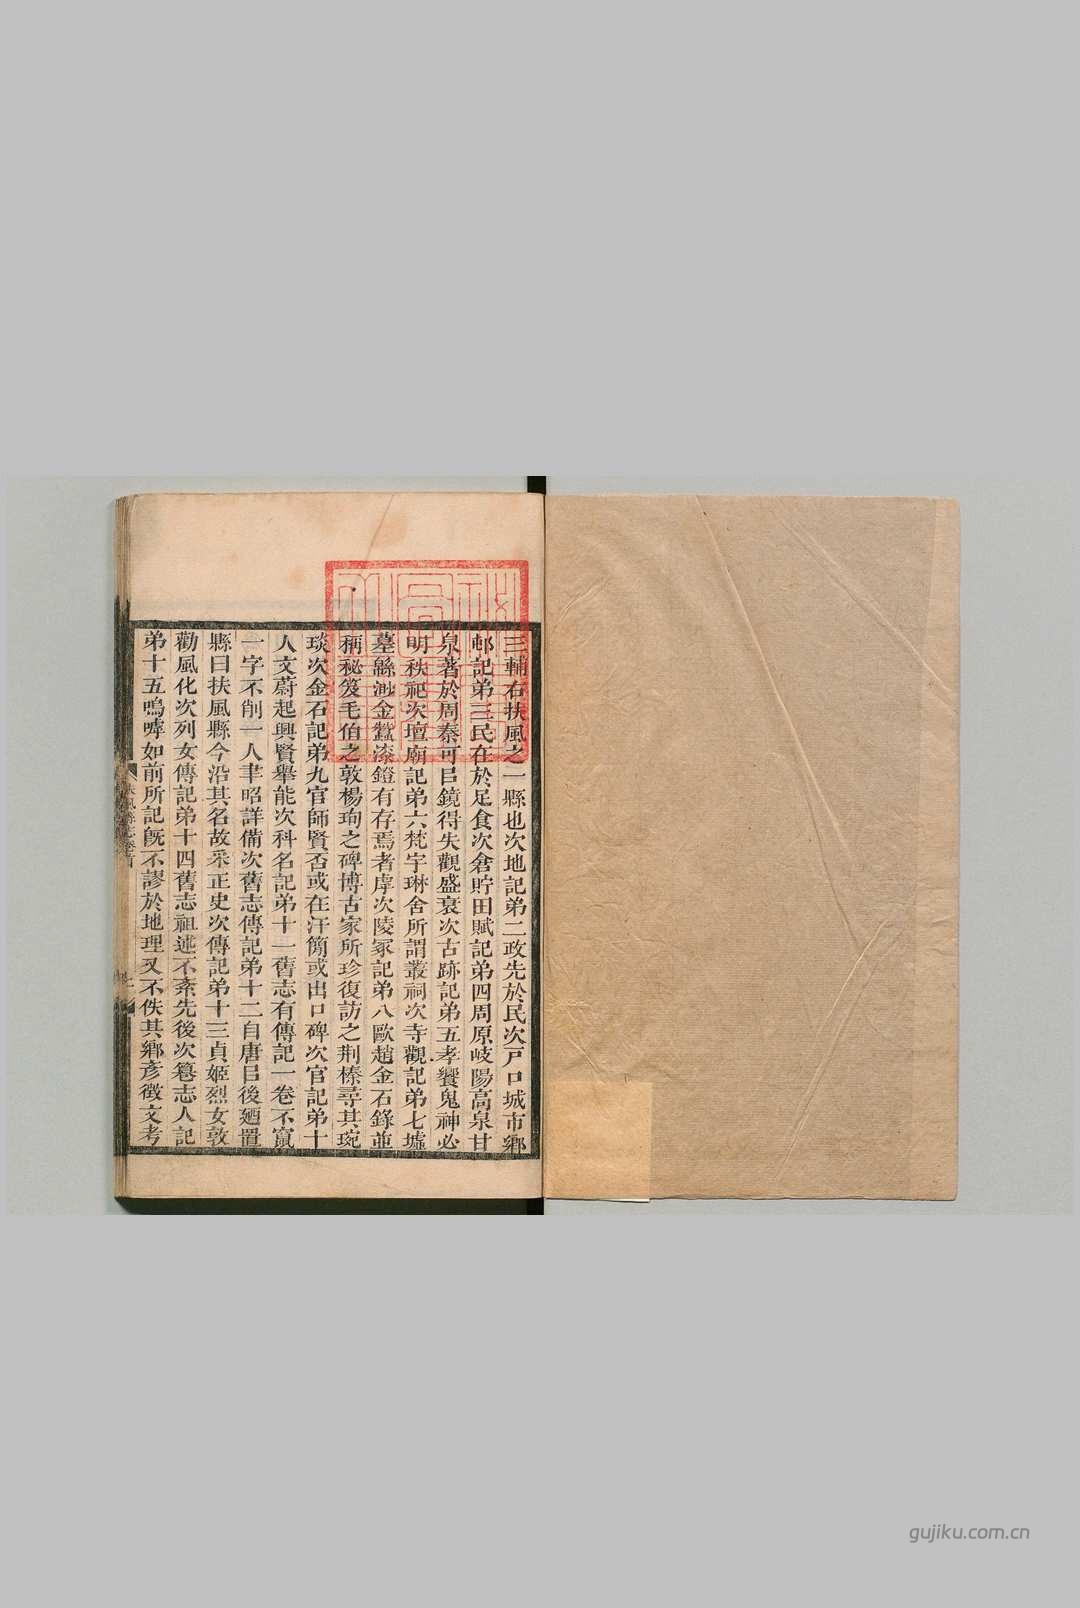 三輔右扶風之一縣也次地記弟二政先於民次戸口城市鄉
邨記弟三民在於足食次倉貯田賦記弟四周原岐陽高泉甘
泉著於周秦可㠯鏡得失觀盛衰次古跡記弟五孝饗鬼神必
明秩祀次壇廟記弟六梵宇琳舍所謂叢祠次寺觀記弟七墟
墓緜渺金蠶漆鐙有存焉者虖次陵冢記弟八歐趙金石錄並
稱秘笈毛伯之敦楊珣之碑博古家所珍復訪之荆榛尋其琬
琰次金石記弟九官師賢否或在汗簡或出口碑次官記弟十
人文蔚起興賢舉能次科名記弟十一舊志有傳記一卷不竄
一字不削一人聿昭詳備次舊志傳記弟十二自唐㠯後廼置
縣曰扶風縣今沿其名故采正史次傳記弟十三貞姬烈女敦
勸風化次列女傳記弟十四舊志祖述不紊先後次篹志人記
弟十五嗚嘑如前所記旣不謬於地理又不佚其鄉彥徵文考
扶風縣志卷首
gujiku.com.cn